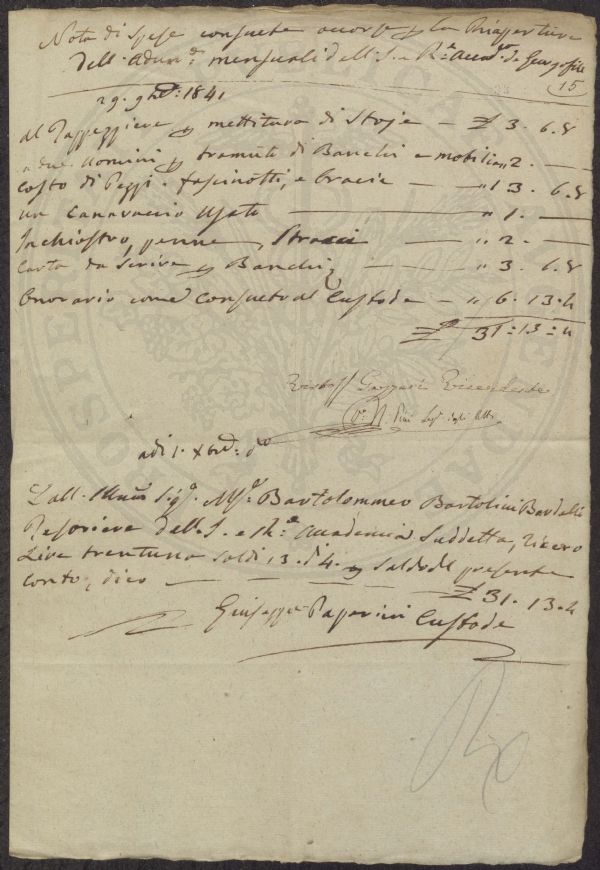 Nota di Spese consuete occorse p la Riapertura
dell. Adun.e mensuali dell. I. e R.e Acc.a de Georgofili
15
29. 9bre: 1841
al Tappezziere p mettitura di Stoje — £ 3. 6. 8
a due uomini p tramuti di Banchi e mobilia „ 2. —
costo di Pezzi. fascinotti, e bracie — — „ 1 3. 6. 8
un Canavaccio Usato — „ 1. —
Inchiostro, penne, Stracci — „ 2. —
Carta da Scrivere p Banchi — „ 3. 6. 8
Onorario come Consueto al Custode — „ 6. 13. 4
£ 31=13=4
Gazzeri Vicepresidente
V. Rini Seg. degli Atti
adì 1. Xbre: do
Dall. Illmo Sig.e Mse. Bartolommeo Bartolini Bardelli
Tesoriere dell. I. e R.e Accademia Suddetta, ricevo
Lire trentuna soldi 13. d 4. p Saldo del presente
Conto, dico — £ 31. 13. 4
Giuseppe Paperini Custode